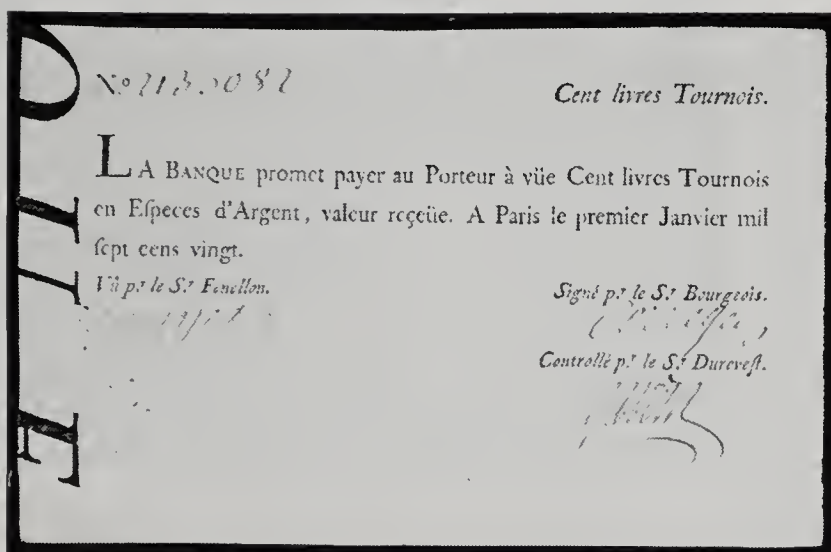 Cent livres Tournois.
LA BANQUE promet payer au Porteur à vûe Cent livres Tournois
en Eſpeces d'Argent, valeur reçeüe. A Paris le premier Janvier mil
ſept cens vingt.
Vû p.r le S.r Fenellon.
Signé p.r le S.r Bourgeois.
Controllé p.r le S.r Dureveſt.